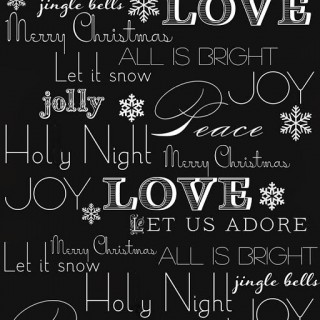 jingle bells LOVE
Merry Christmas
ALL IS BRIGHT
Let it snow JOY
jolly
Peace
Holy Night Merry Christmas
JOY LOVE
LET US ADORE
Merry Christmas ALL IS BRIGHT
Let it snow
jingle bells
Holy Night JOY